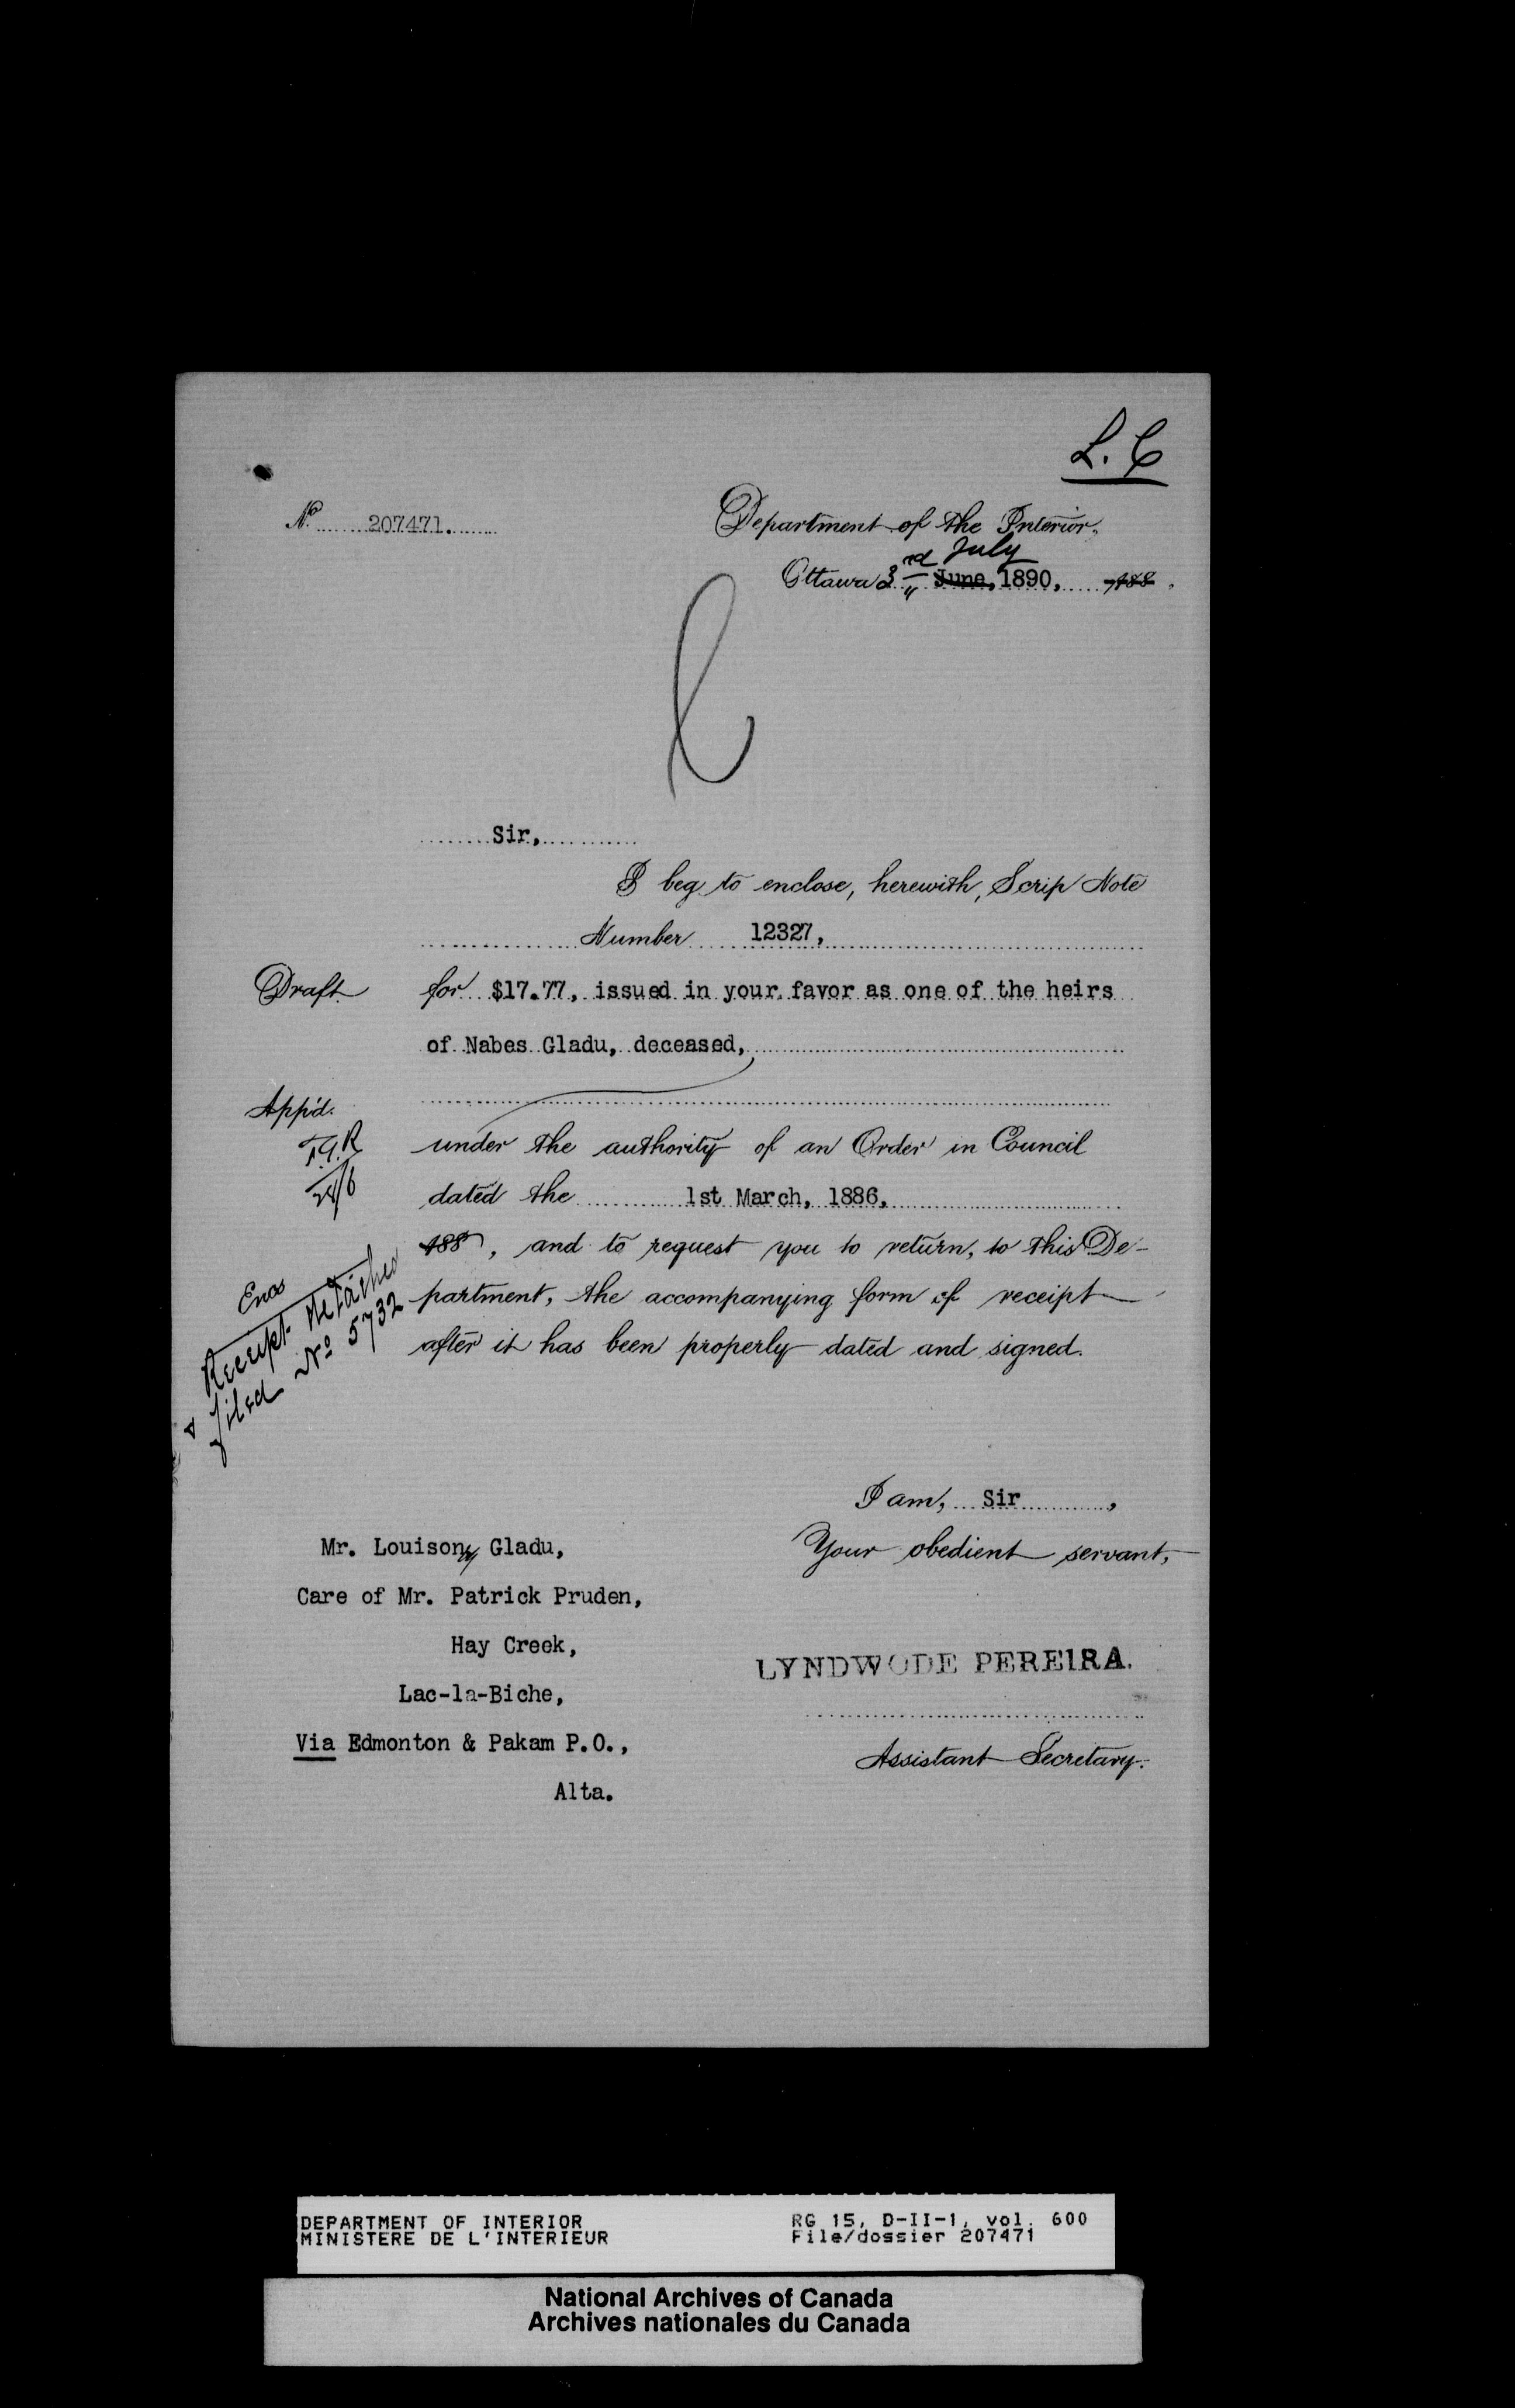 L. C
No 207471.
Department of the Interior,
July
Ottawa 3rd June, 1890, 188 .
Sir,
I beg to enclose, herewith, Scrip Note
Number 12327,
Draft for $17.77, issued in your favor as one of the heirs
of Nabes Gladu, deceased,
App'd.
under the authority of an Order in Council
dated the 1st March, 1886,
188 , and to request you to return, to this De-
partment, the accompanying form of receipt
after it has been properly dated and signed.
Receipt detached
& filed No 5732
I am, Sir ,
Your obedient servant,
Mr. Louison Gladu,
Care of Mr. Patrick Pruden,
Hay Creek,
Lac-la-Biche,
Via Edmonton & Pakam P.O.,
Alta.
LYNDWODE PEREIRA.
Assistant Secretary.
DEPARTMENT OF INTERIOR
MINISTERE DE L'INTERIEUR
RG 15, D-II-1, vol. 600
File/dossier 207471
National Archives of Canada
Archives nationales du Canada